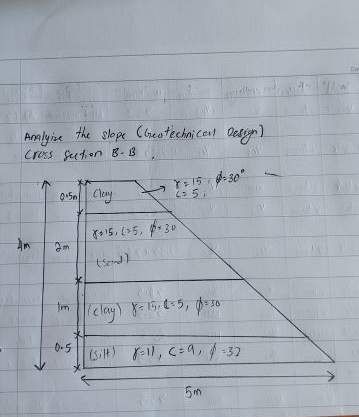 Analyize the slope (Geotechnical Design)
Cross section B-B.
0.5m
Clay
γ=15, φ=30°
c=5,
4m
2m
γ=15, c=5, φ=30
(sand)
1m
(clay) γ=15, c=5, φ=30
0.5
(silt) γ=17, c=9, φ=32
5m